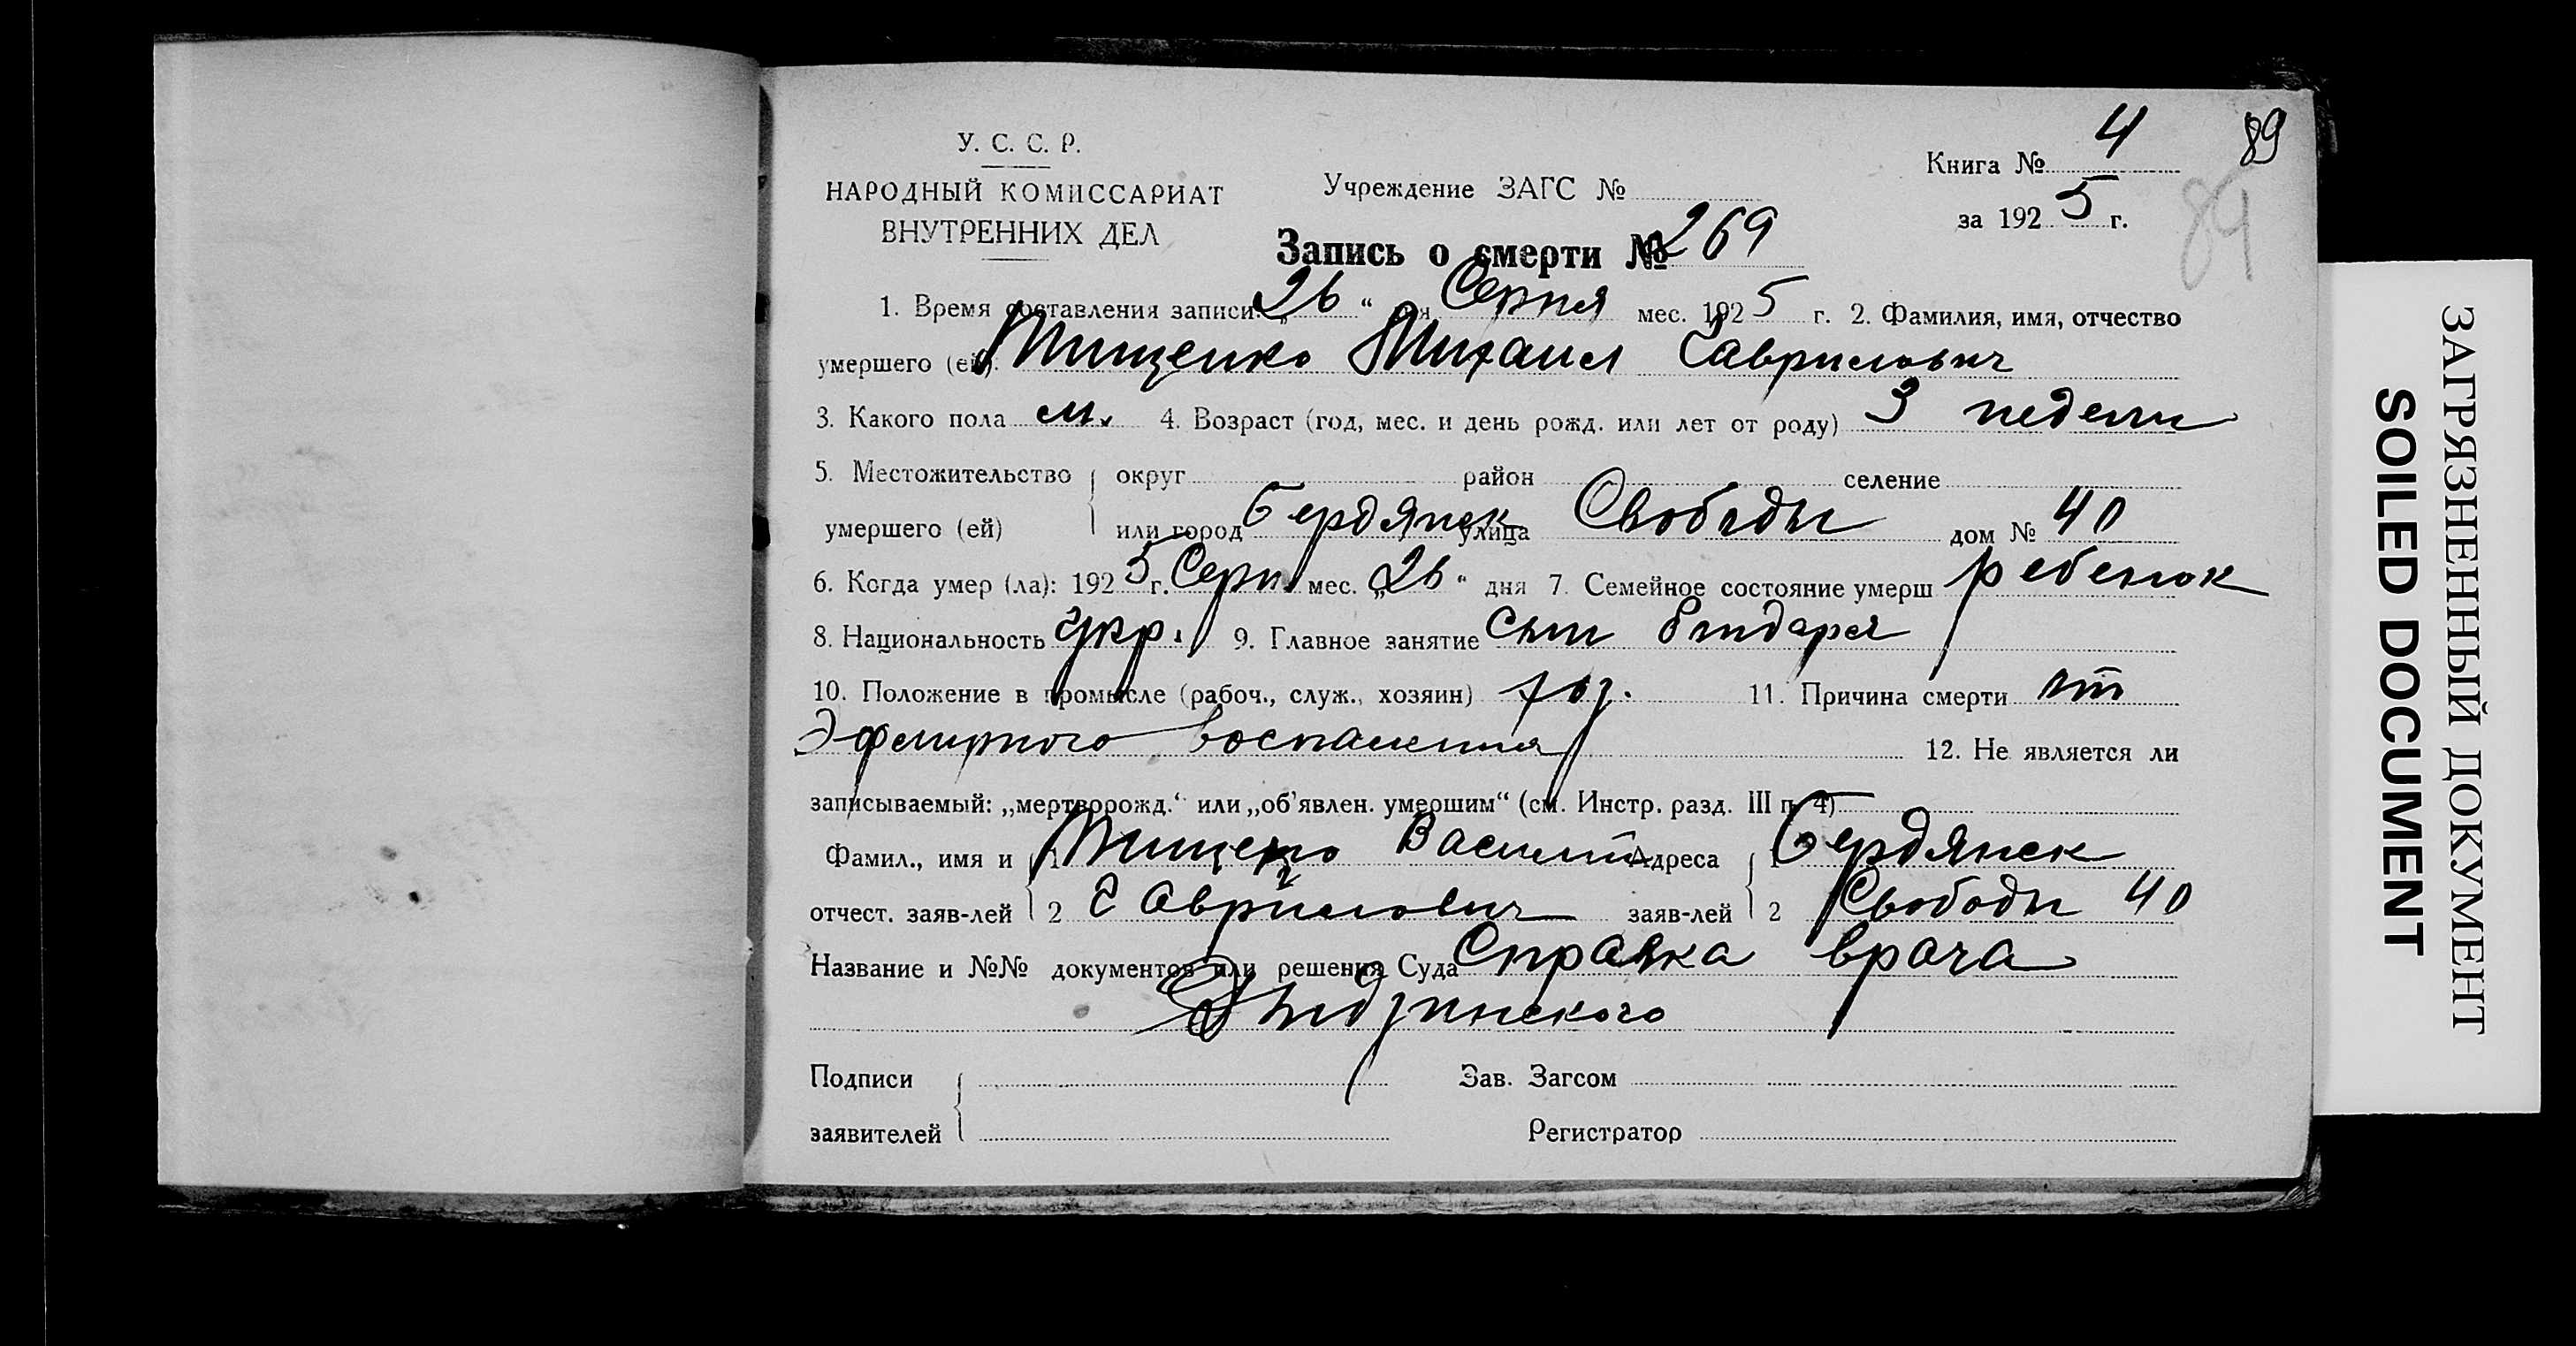 У. С. С. Р.
НАРОДНЫЙ КОМИССАРИАТ
ВНУТРЕННИХ ДЕЛ
Учреждение ЗАГС №
Книга № 4
за 1925 г.
89
89
Запись о смерти № 269
1. Время составления записи: „26“ дня Серпня мес. 1925 г. 2. Фамилия, имя, отчество
умершего (ей): Тищенко Михаил Гаврилович
3. Какого пола м. 4. Возраст (год, мес. и день рожд. или лет от роду) 3 недели
5. Местожительство округ район селение
умершего (ей) или город Бердянск улица Свободы дом № 40
6. Когда умер (ла): 1925 г. Серп. мес. „26“ дня 7. Семейное состояние умерш ребенок
8. Национальность укр. 9. Главное занятие Сын бондаря
10. Положение в промысле (рабоч., служ., хозяин) хоз. 11. Причина смерти от
воспаления 12. Не является ли
записываемый: „мертворожд.“ или „об’явлен. умершим“ (см. Инстр. разд. III п. 4)
Фамил., имя и 1 Тищенко Василий Адреса 1 Бердянск
отчест. заяв-лей 2 Гаврилович заяв-лей 2 Свободы 40
Название и №№ документов или решения Суда Справка врача
Подписи Зав. Загсом
заявителей Регистратор
ЗАГРЯЗНЕННЫЙ ДОКУМЕНТ
SOILED DOCUMENT